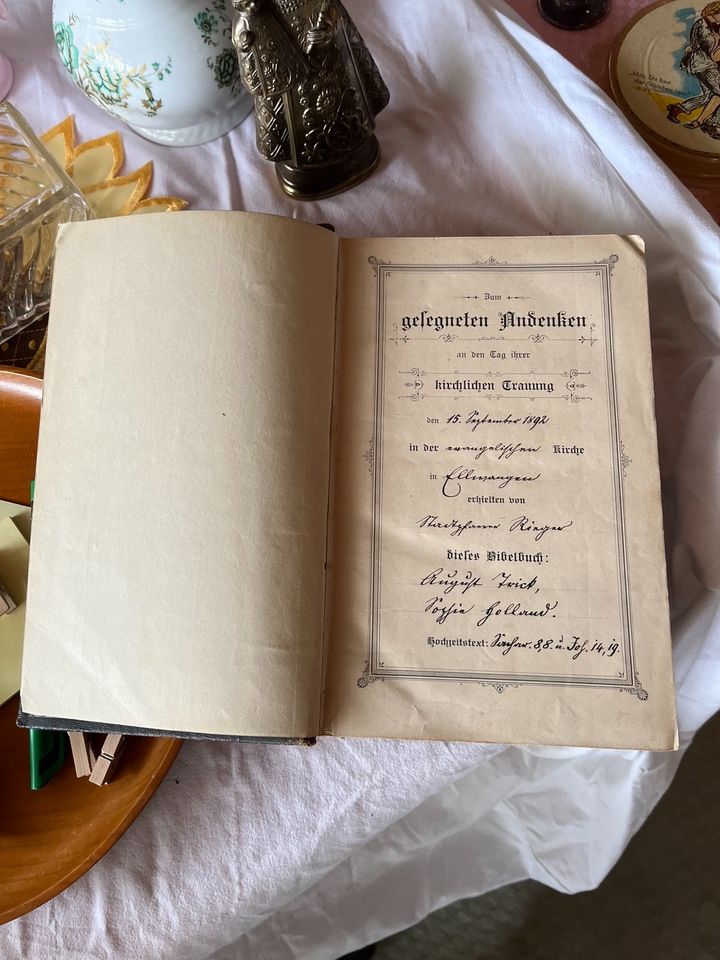 Zum
gesegneten Andenken
an den Tag ihrer
kirchlichen Trauung
den 15. September 1892
in der evangelischen Kirche
in Ellwangen
erhielten von
Stadtpfarrer Rieger
dieses Bibelbuch:
August Trick,
Sophie Holland.
Hochzeitstext: Sachar. 8,8. u. Joh. 14,19.